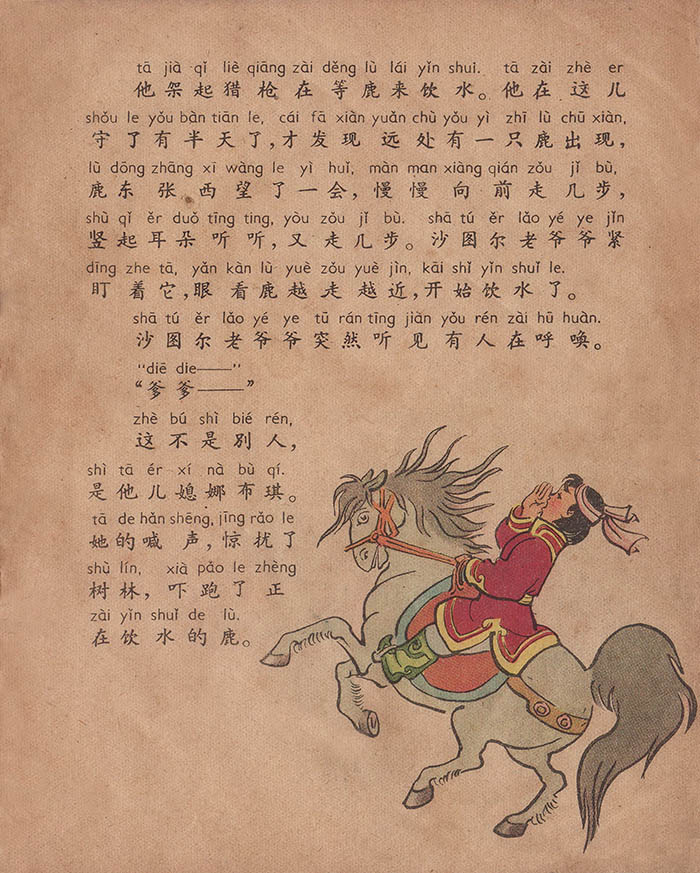 tā jià qǐ liè qiāng zài děng lù lái yǐn shui. tā zài zhè er
他架起猎枪在等鹿来饮水。他在这儿
shǒu le yǒu bàn tiān le, cái fā xiàn yuǎn chù yǒu yì zhī lù chū xiàn,
守了有半天了,才发现远处有一只鹿出现,
lù dōng zhāng xī wàng le yì huǐ, màn man xiàng qián zǒu jǐ bù,
鹿东张西望了一会,慢慢向前走几步,
shù qǐ ěr duǒ tīng ting, yòu zǒu jǐ bù. shā tú ěr lǎo yé ye jǐn
竖起耳朵听听,又走几步。沙图尔老爷爷紧
dīng zhe tā, yǎn kàn lù yuè zǒu yuè jìn, kāi shǐ yǐn shuǐ le.
盯着它,眼看鹿越走越近,开始饮水了。
shā tú ěr lǎo yé ye tū rán tīng jiàn yǒu rén zài hū huàn.
沙图尔老爷爷突然听见有人在呼唤。
“diē die——”
“爹爹——”
zhè bú shì bié rén,
这不是别人,
shì tā ér xí nà bù qí.
是他儿媳娜布琪。
tā de hǎn shēng, jīng rǎo le
她的喊声,惊扰了
shù lín, xià pǎo le zhèng
树林,吓跑了正
zài yǐn shuǐ de lù.
在饮水的鹿。